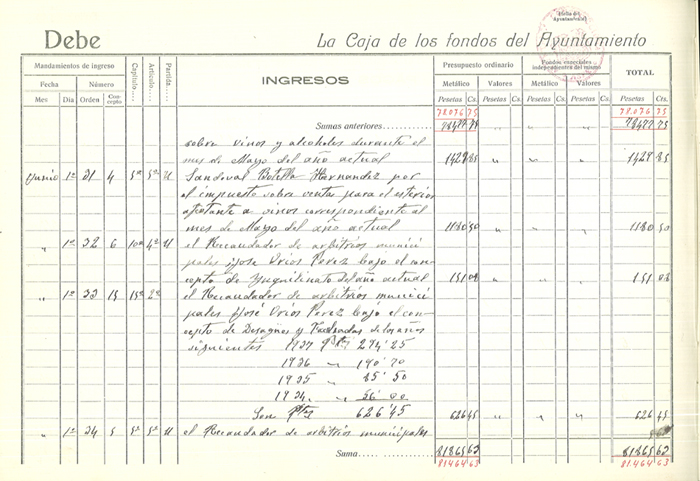 Debe
La Caja de los fondos del Ayuntamiento
Mandamientos de ingreso
Fecha Número
Mes Día Orden Concepto
Capítulo.... Artículo.... Partida....
INGRESOS
Presupuesto ordinario
Metálico Valores
Pesetas Cs. Pesetas Cs.
Fondos especiales independientes del mismo
Metálico Valores
Pesetas Cs. Pesetas Cs.
TOTAL
Pesetas Cts.
78.076 75 78.076 75
Sumas anteriores
sobre vinos y alcoholes durante el
mes de Mayo del año actual 1427 85 " " " 1427 85
Junio 1º 31 4 5º 5º U Sandoval Botella Hernandez por
el impuesto sobre ventas para el exterior
a vinos correspondiente al
mes de Mayo del año actual 1180 50 " " " 1180 50
" 1º 32 6 10º 4º U el Recaudador de arbitrios munici
pales José Oriós Perez bajo el con
cepto de Inquilinato del año actual 151 08 " " " 151 08
" 1º 33 15 15º 2º el Recaudador de arbitrios munici
pales José Oriós Perez bajo el con
cepto de Desagües y Fachadas de los años
siguientes 1937 Ptas 294'25
1936 " 190'70
1935 " 85'50
1934 " 56'00
Son Ptas 626'45 626 45 " " " 626 45
" 1º 34 5 5º 5º U el Recaudador de arbitrios municipales
Suma 81865 63 81865 63
81.464 63 81.464 63